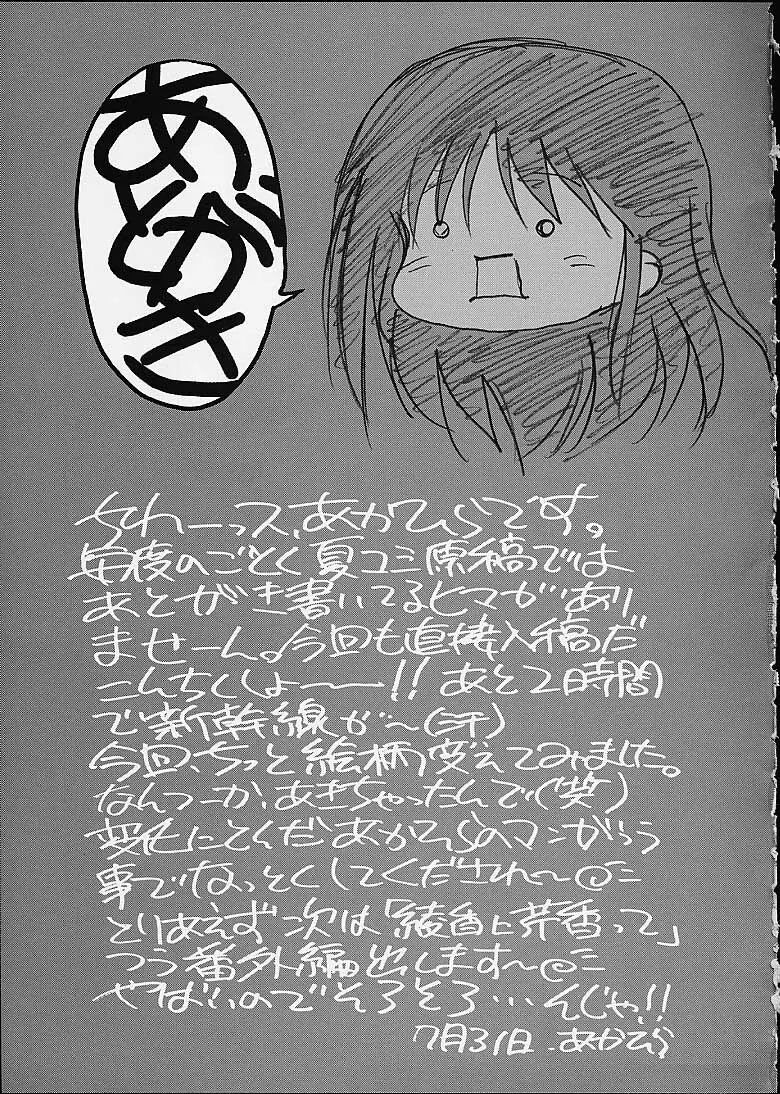 あとがき
ちわーっス、あかひらです。
毎度のごとく夏コミ原稿では
あとがき書いてるヒマがあり
ませーん。今回も直接入稿だ
こんちくしょーー!! あと2時間
で新幹線が〜(汗)
今回、ちっと絵柄変えてみました。
なんつーか、あきちゃったんで(笑)
変化にとんだあかひらのマンガっつう
事でなっとくしてくだされ〜
とりあえず次は「綾香と芹香って」
つう番外編出します〜
やばいのでそろそろ…んじゃ!!
7月31日 あかひら